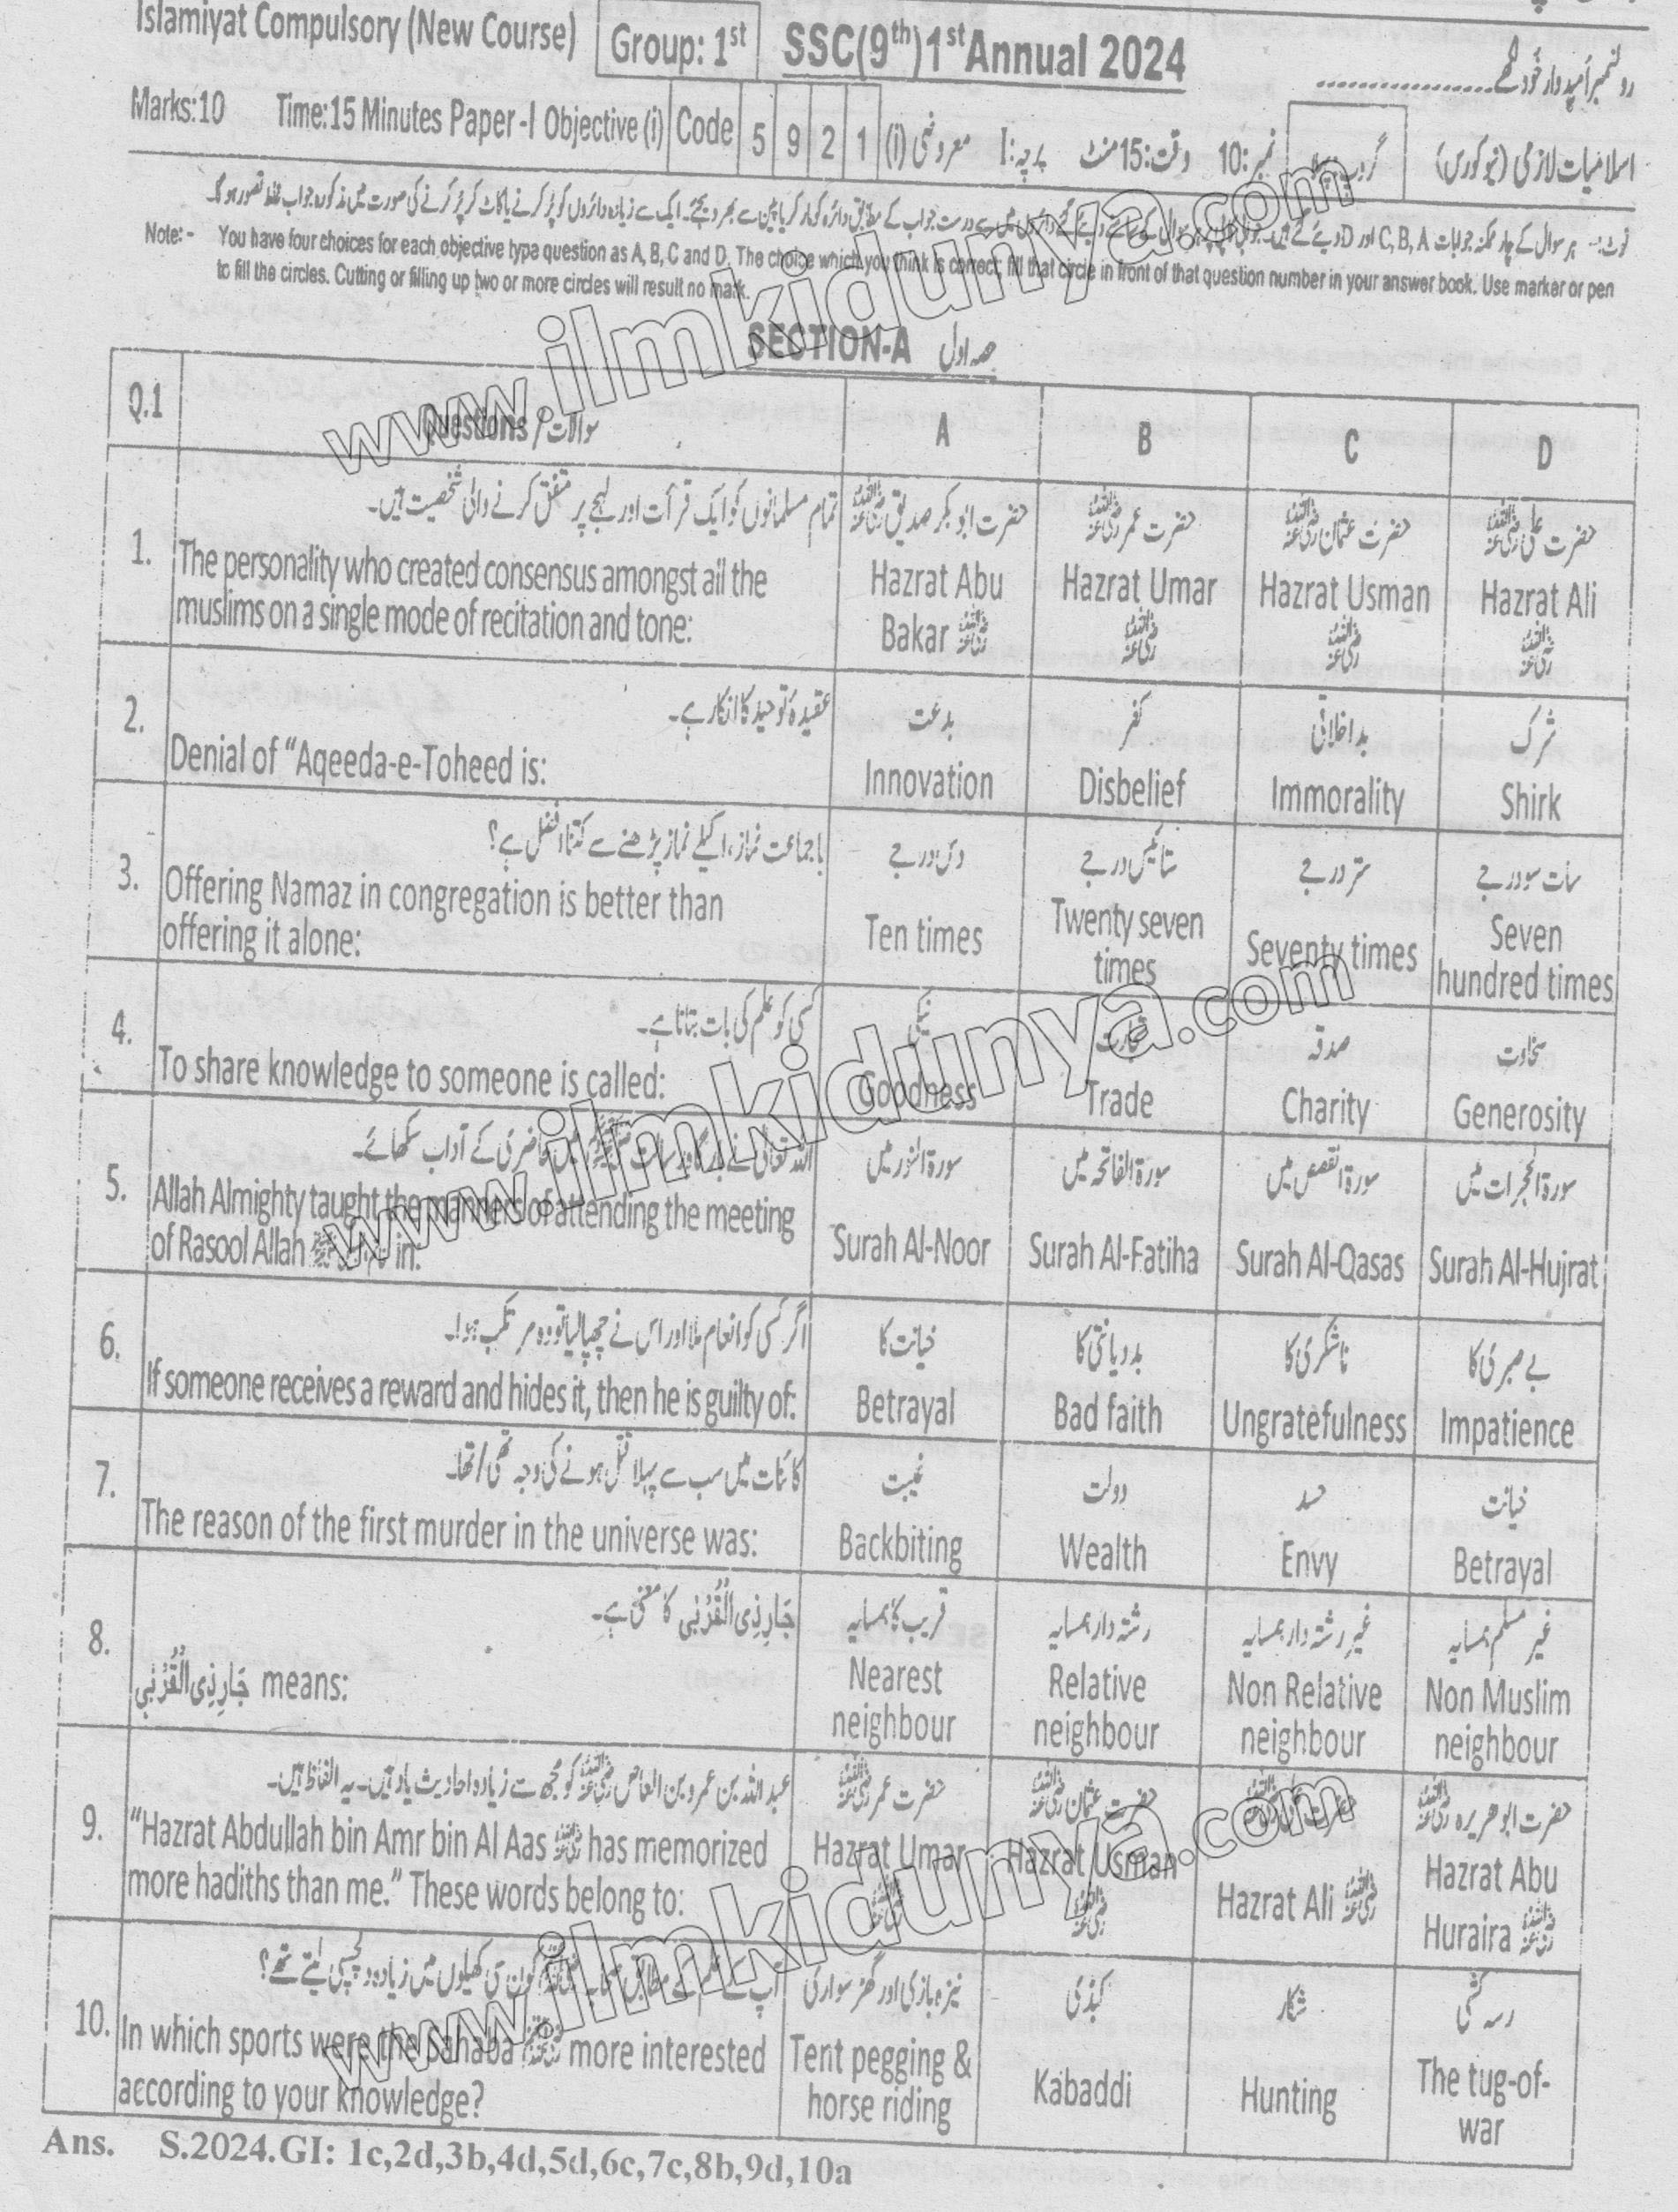 Islamiyat Compulsory (New Course) Group: 1st SSC(9th)1st Annual 2024 رولنمبر امیدوار خود لکھے
Marks:10 Time:15 Minutes Paper -I Objective (i) Code 5 9 2 1 معروضی (i) پرچہ: I وقت:15منٹ نمبر:10 گروپ پہلا اسلامیات لازمی (نیو کورس)
Note:- You have four choices for each objective typa question as A, B, C and D. The choice which you think is correct; fill that circle in front of that question number in your answer book. Use marker or pen
to fill the circles. Cutting or filling up two or more circles will result no mark.
SECTION-A حصہ اول
Q.1 Questions / سوالات A B C D
1. تمام مسلمانوں کو ایک قرآت اور لہجے پر متفق کرنے والی شخصیت ہیں۔
The personality who created consensus amongst ail the
muslims on a single mode of recitation and tone:
حضرت ابوبکر صدیق رضی اللہ عنہ
Hazrat Abu
Bakar رضی اللہ عنہ
حضرت عمر رضی اللہ عنہ
Hazrat Umar
رضی اللہ عنہ
حضرت عثمان رضی اللہ عنہ
Hazrat Usman
رضی اللہ عنہ
حضرت علی رضی اللہ عنہ
Hazrat Ali
رضی اللہ عنہ
2. عقیدہ توحید کا انکار ہے۔
Denial of “Aqeeda-e-Toheed is:
بدعت
Innovation
کفر
Disbelief
بداخلاقی
Immorality
شرک
Shirk
3. باجماعت نماز، اکیلے نماز پڑھنے سے کتنا افضل ہے؟
Offering Namaz in congregation is better than
offering it alone:
دس درجے
Ten times
ستائیس درجے
Twenty seven
times
ستر درجے
Seventy times
سات سو درجے
Seven
hundred times
4. کسی کو علم کی بات بتانا ہے۔
To share knowledge to someone is called:
نیکی
Goodness
تجارت
Trade
صدقہ
Charity
سخاوت
Generosity
5. اللہ تعالیٰ نے بارگاہ رسالت ﷺ میں حاضری کے آداب سکھائے۔
Allah Almighty taught the manners of attending the meeting
of Rasool Allah in:
سورۃ النور میں
Surah Al-Noor
سورۃ الفاتحہ میں
Surah Al-Fatiha
سورۃ القصص میں
Surah Al-Qasas
سورۃ الحجرات میں
Surah Al-Hujrat
6. اگر کسی کو انعام ملا اور اس نے چھپا لیا تو وہ مرتکب ہوا۔
If someone receives a reward and hides it, then he is guilty of:
خیانت کا
Betrayal
بددیانتی کا
Bad faith
ناشکری کا
Ungratefulness
بے صبری کا
Impatience
7. کائنات میں سب سے پہلا قتل ہونے کی وجہ تھی/تھا۔
The reason of the first murder in the universe was:
غیبت
Backbiting
دولت
Wealth
حسد
Envy
خیانت
Betrayal
8. جَارِ ذِی الْقُرْبٰی کا معنیٰ ہے۔
جَارِ ذِی الْقُرْبٰی means:
قریب کا ہمسایہ
Nearest
neighbour
رشتہ دار ہمسایہ
Relative
neighbour
غیر رشتہ دار ہمسایہ
Non Relative
neighbour
غیر مسلم ہمسایہ
Non Muslim
neighbour
9. عبداللہ بن عمرو بن العاص رضی اللہ عنہ کو مجھ سے زیادہ احادیث یاد ہیں۔ یہ الفاظ ہیں۔
“Hazrat Abdullah bin Amr bin Al Aas رضی اللہ عنہ has memorized
more hadiths than me.” These words belong to:
حضرت عمر رضی اللہ عنہ
Hazrat Umar
حضرت عثمان رضی اللہ عنہ
Hazrat Usman
رضی اللہ عنہ
Hazrat Ali رضی اللہ عنہ
حضرت ابوھریرہ رضی اللہ عنہ
Hazrat Abu
Huraira رضی اللہ عنہ
10. کون سی کھیلوں میں زیادہ دلچسپی لیتے تھے؟
In which sports were the Sahaba more interested
according to your knowledge?
نیزہ بازی اور گھڑ سواری
Tent pegging &
horse riding
کبڈی
Kabaddi
شکار
Hunting
رسہ کشی
The tug-of-
war
Ans. S.2024.GI: 1c,2d,3b,4d,5d,6c,7c,8b,9d,10a
www.ilmkidunya.com
www.ilmkidunya.com
www.ilmkidunya.com